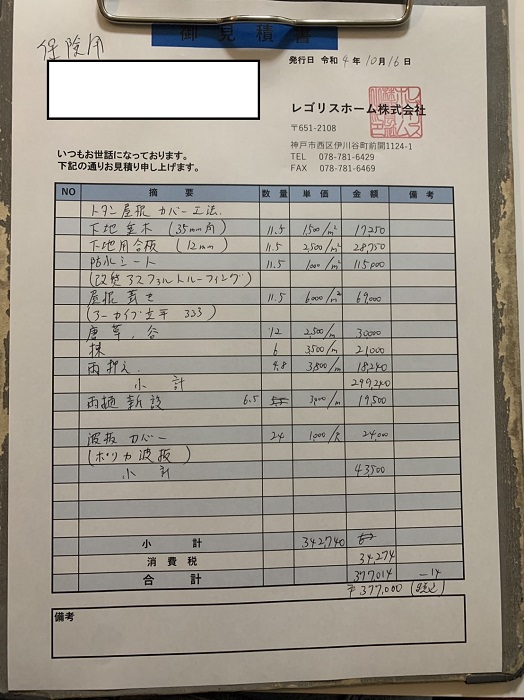 保険用
御見積書
発行日 令和 4 年 10 月 16 日
レゴリスホーム株式会社
〒651-2108
神戸市西区伊川谷町前開1124-1
TEL 078-781-6429
FAX 078-781-6469
いつもお世話になっております。
下記の通りお見積り申し上げます。
NO 摘要 数量 単価 金額 備考
トタン屋根 カバー工法
下地垂木 (35mm角) 11.5 1500/m² 17250
下地用合板 (12mm) 11.5 2,500/m² 28,750
防水シート 11.5 1000/m² 115,000
(改質アスファルトルーフィング)
屋根葺き 11.5 6000/m² 69,000
立平 333)
唐草、谷 12 2,500/m 30000
棟 6 3500/m 21,000
雨押え 4.8 3,800/m 18,240
小計 299,240
雨樋新設 6.5 3,000/m 19,500
波板カバー 24 1000/枚 24,000
(ポリカ波板)
小計 43,500
小計 342,740
消費税 34,274
合計 377,014 -14
¥377,000 (税込)
備考